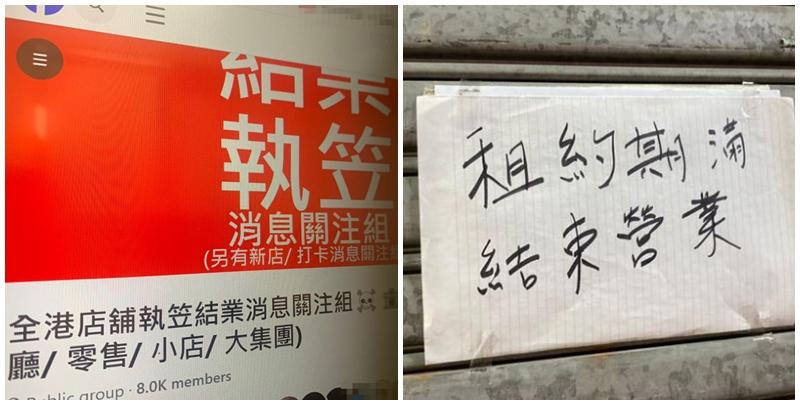 結業
執笠
消息關注組
(另有新店/ 打卡消息關注
全港店舖執笠結業消息關注組☠️
廳/ 零售/ 小店/ 大集團)
Public group · 8.0K members
租約期滿
結束營業